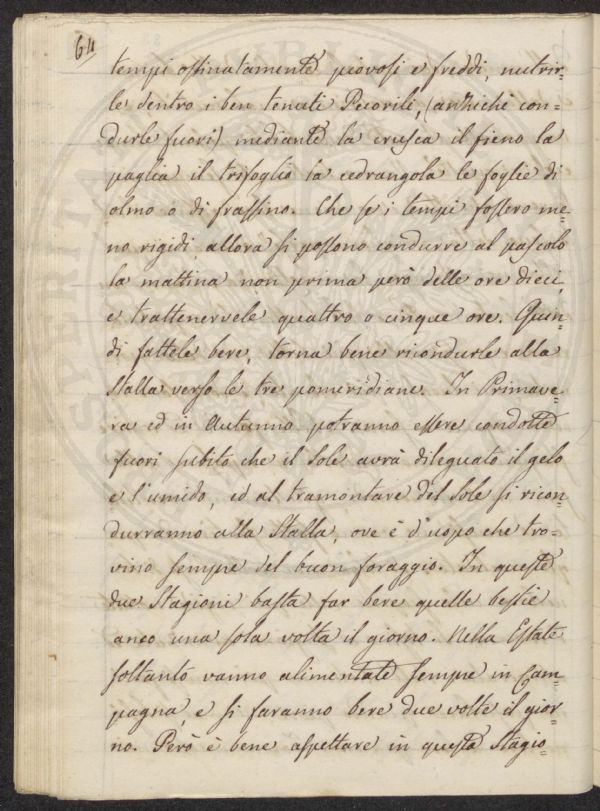 64
tempi ostinatamente piovosi e freddi, nutrir=
le dentro i ben tenuti Pecorili, (anzichè con=
durle fuori) mediante la crusca il fieno la
paglia il trifoglio la cedrangola le foglie di
olmo o di frassino. Che se i tempi fossero me=
no rigidi allora si possono condurre al pascolo
la mattina non prima però delle ore dieci,
e trattenervele quattro o cinque ore. Quin=
di fattele bere, torna bene ricondurle alla
Stalla verso le tre pomeridiane. In Primave=
ra ed in Autunno potranno essere condotte
fuori subito che il Sole avrà dileguato il gelo
e l'umido, ed al tramontare del Sole si ricon=
durranno alla Stalla, ove è d'uopo che tro=
vino sempre del buon foraggio. In queste
due Stagioni basta far bere quelle bestie
anco una sola volta il giorno. Nella Estate
soltanto vanno alimentate sempre in Cam=
pagna, e si faranno bere due volte il gior=
no. Però è bene aspettare in questa Stagio=